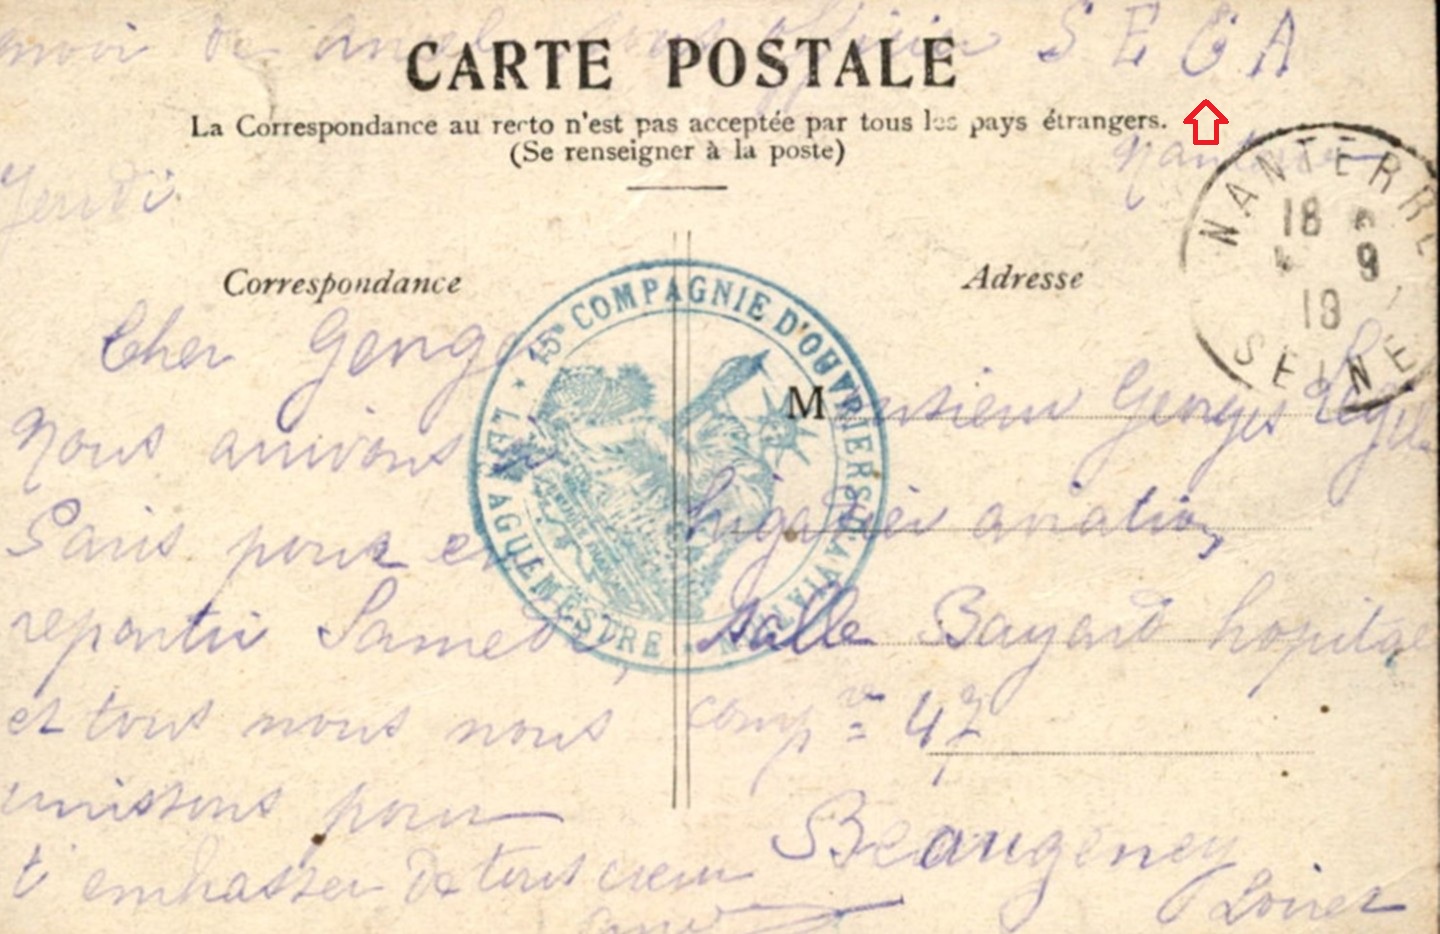 envoi de Amel sous officier S E G A
CARTE POSTALE
La Correspondance au recto n'est pas acceptée par tous les pays étrangers.
(Se renseigner à la poste)
Nanterre
Jeudi.
NANTERRE
18
4 9
19
SEINE
Correspondance
Adresse
15e COMPAGNIE D'OUVRIERS
LE VAGUEMESTRE
Cher George
Nous arrivons
Paris pour en
repartir Samedi,
et tous nous nous
unissons pour
t'embrasser de tout cœur
Monsieur Georges
aviation,
salle Bayard hopital
comp re 47
Beaugency
Loiret